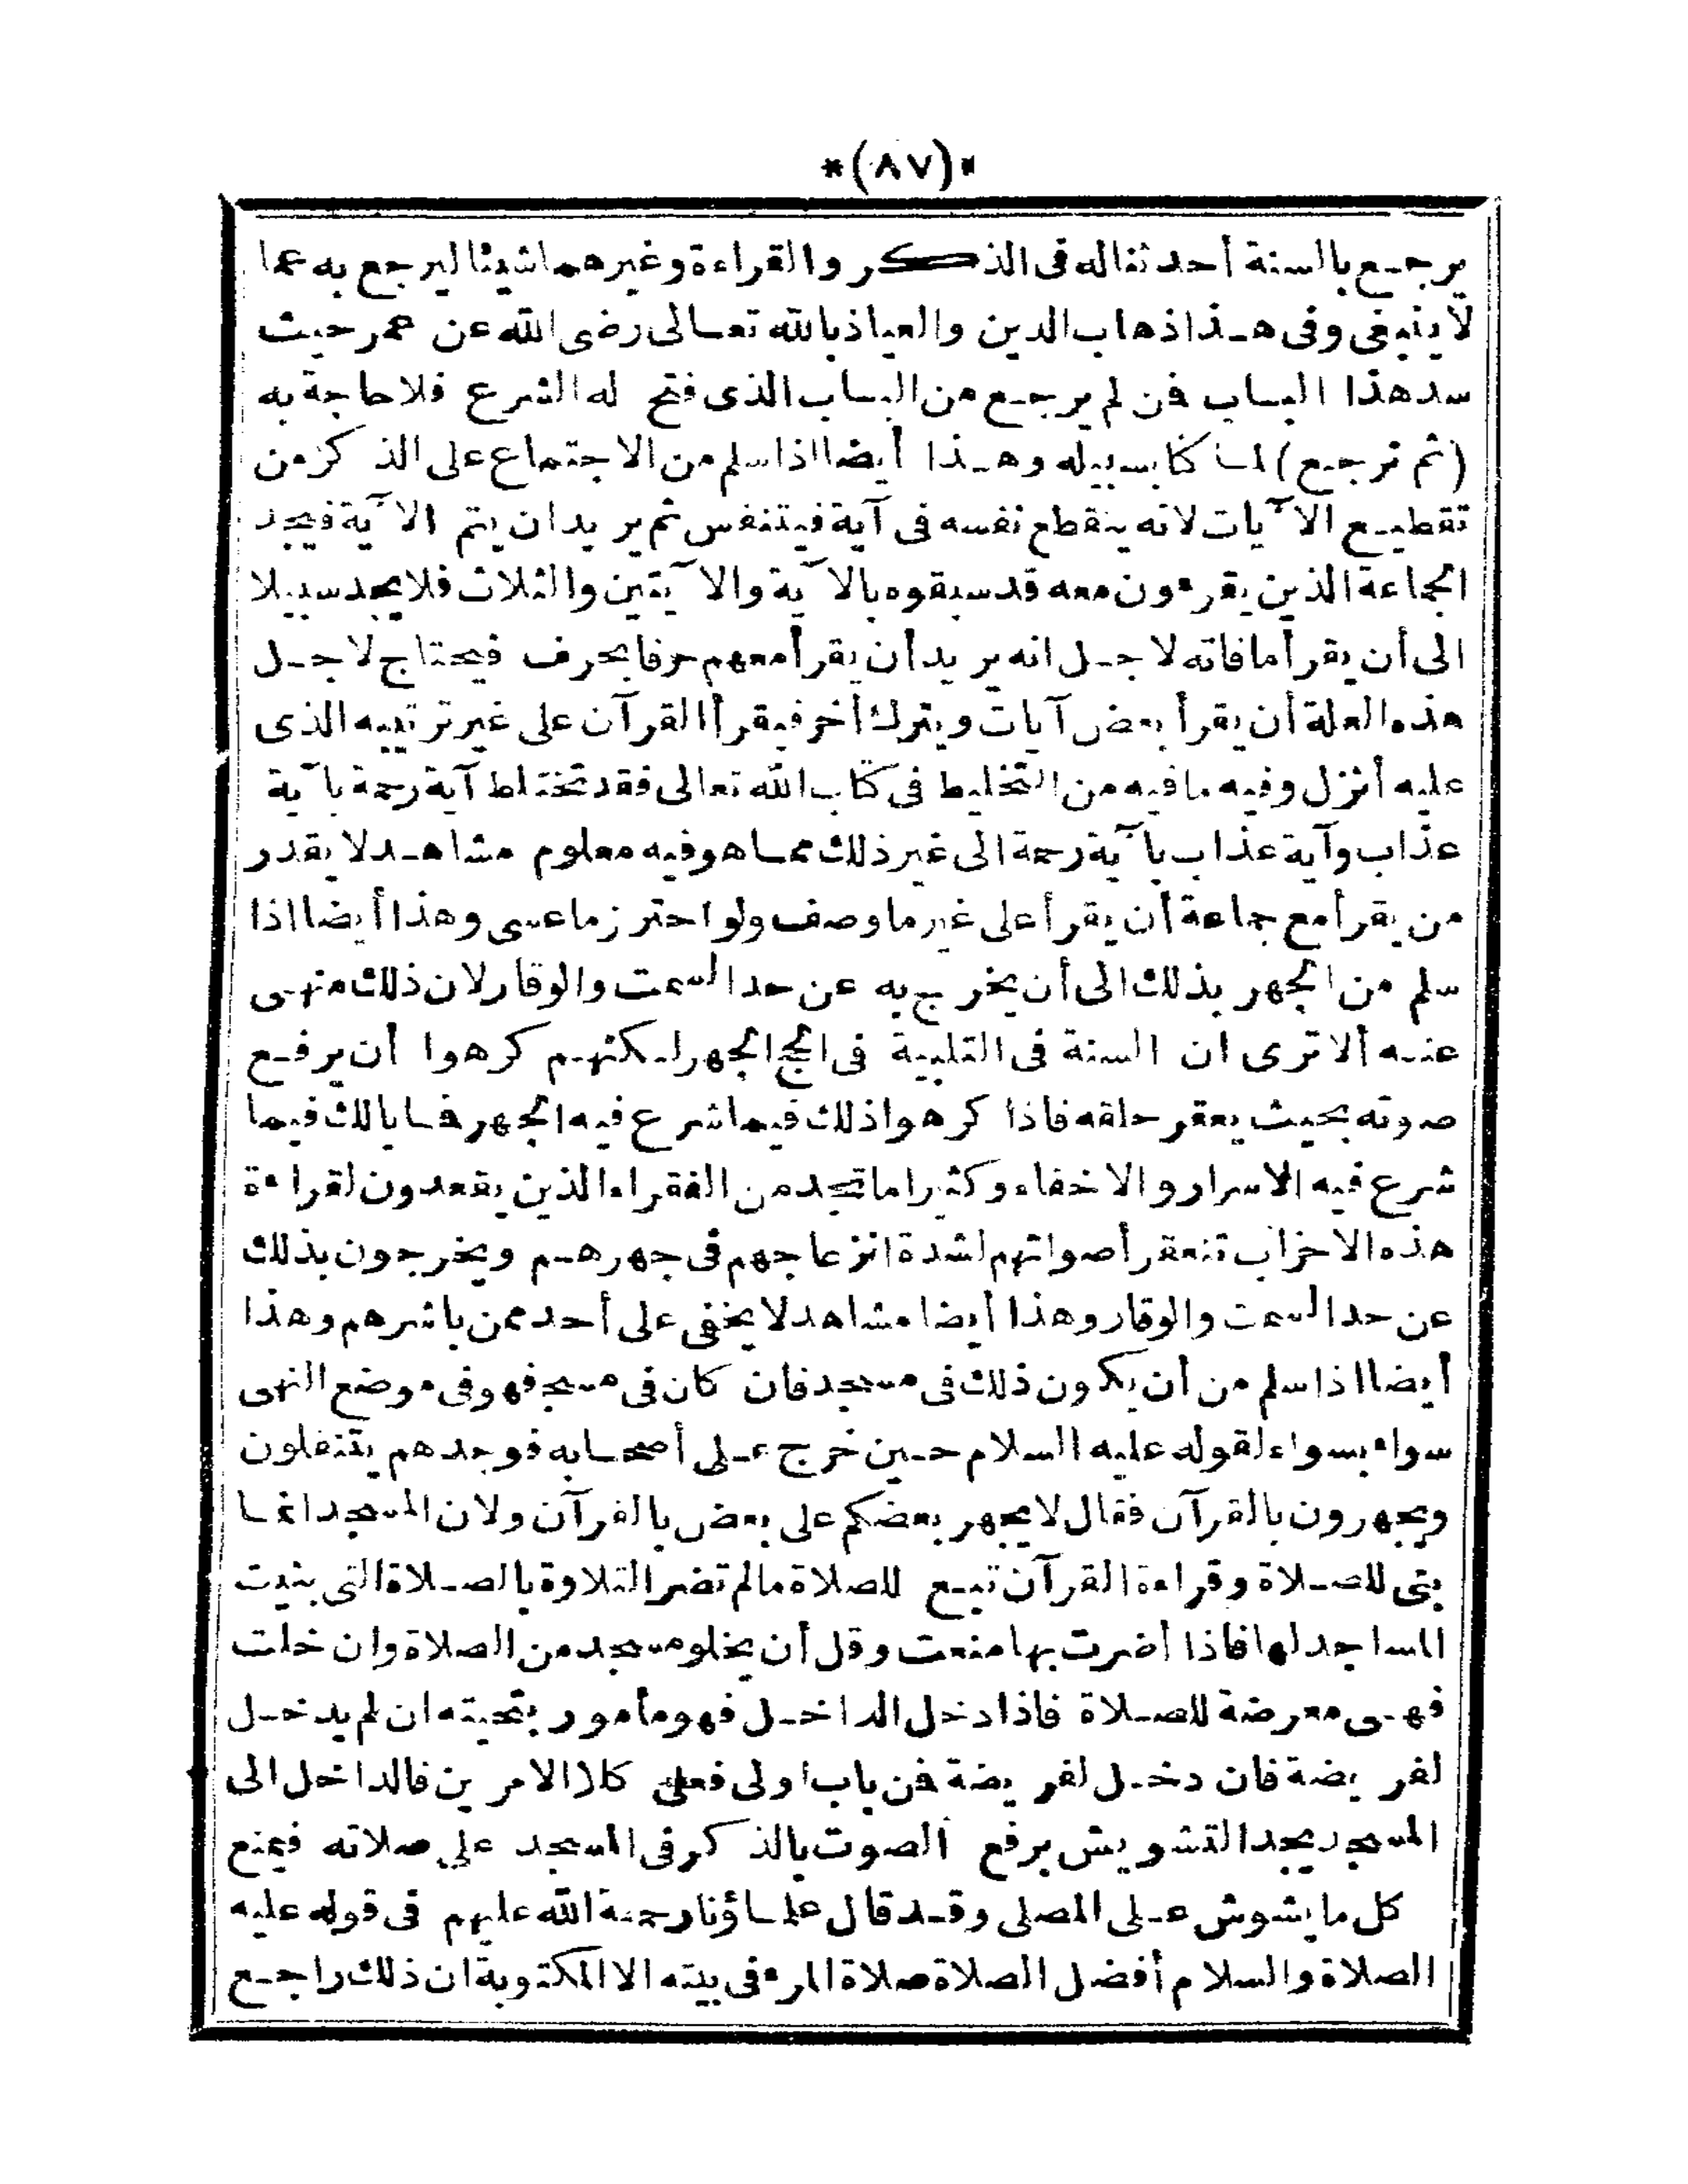 *(٨٧)*
يرجع بالسنة أحدثنا له فى الذكر والقراءة وغيرهما شيئا ليرجع به عما
لا ينبغى وفى هذا ذهاب الدين والعياذ بالله تعالى رضى الله عن عمر حيث
سد هذا الباب فمن لم يرجع من الباب الذى فتح له الشرع فلا حاجة به
(ثم ترجع) لما كنا بسبيله وهذا أيضا اذا سلم من الاجتماع على الذكر من
تقطيع الآيات لانه ينقطع نفسه فى آية فيتنفس ثم يريد ان يتم الآية فيجد
الجماعة الذين يقرءون معه قد سبقوه بالآية والآيتين والثلاث فلا يجد سبيلا
الى أن يقرأ ما فاته لاجل انه يريد أن يقرأ معهم حرفا بحرف فيحتاج لاجل
هذه العلة أن يقرأ بعض آيات ويترك أخر فيقرأ القرآن على غير ترتيبه الذى
عليه أنزل وفيه ما فيه من التخليط فى كتاب الله تعالى فقد تختلط آية رحمة بآية
عذاب وآية عذاب بآية رحمة الى غير ذلك مما هو فيه معلوم مشاهد لا يقدر
من يقرأ مع جماعة أن يقرأ على غير ما وصف ولو احترز ما عسى وهذا أيضا اذا
سلم من الجهر بذلك الى أن يخرج به عن حد السمت والوقار لان ذلك منهى
عنه ألا ترى ان السنة فى التلبية فى الحج الجهر لكنهم كرهوا أن يرفع
صوته بحيث يعقر حلقه فاذا كرهوا ذلك فيما شرع فيه الجهر فما بالك فيما
شرع فيه الاسرار والاخفاء وكثيرا ما تجد من الفقراء الذين يقعدون لقراءة
هذه الاحزاب تنعقر أصواتهم لشدة انزعاجهم فى جهرهم ويخرجون بذلك
عن حد السمت والوقار وهذا أيضا مشاهد لا يخفى على أحد ممن باشرهم وهذا
أيضا اذا سلم من أن يكون ذلك فى مسجد فان كان فى مسجد فهو فى موضع النهى
سواء بسواء لقوله عليه السلام حين خرج على أصحابه فوجدهم يتنفلون
ويجهرون بالقرآن فقال لا يجهر بعضكم على بعض بالقرآن ولان المسجد انما
بنى للصلاة وقراءة القرآن تبع للصلاة ما لم تضر التلاوة بالصلاة التى بنيت
المساجد لها فاذا أضرت بها منعت وقل أن يخلو مسجد من الصلاة وان خلت
فهى معرضة للصلاة فاذا دخل الداخل فهو مأمور بتحيته ان لم يدخل
لفريضة فان دخل لفريضة فمن باب اولى فعلى كلا الامرين فالداخل الى
المسجد يجد التشويش برفع الصوت بالذكر فى المسجد على صلاته فيمنع
كل ما يشوش على المصلى وقد قال علماؤنا رحمة الله عليهم فى قوله عليه
الصلاة والسلام أفضل الصلاة صلاة المرء فى بيته الا المكتوبة ان ذلك راجع